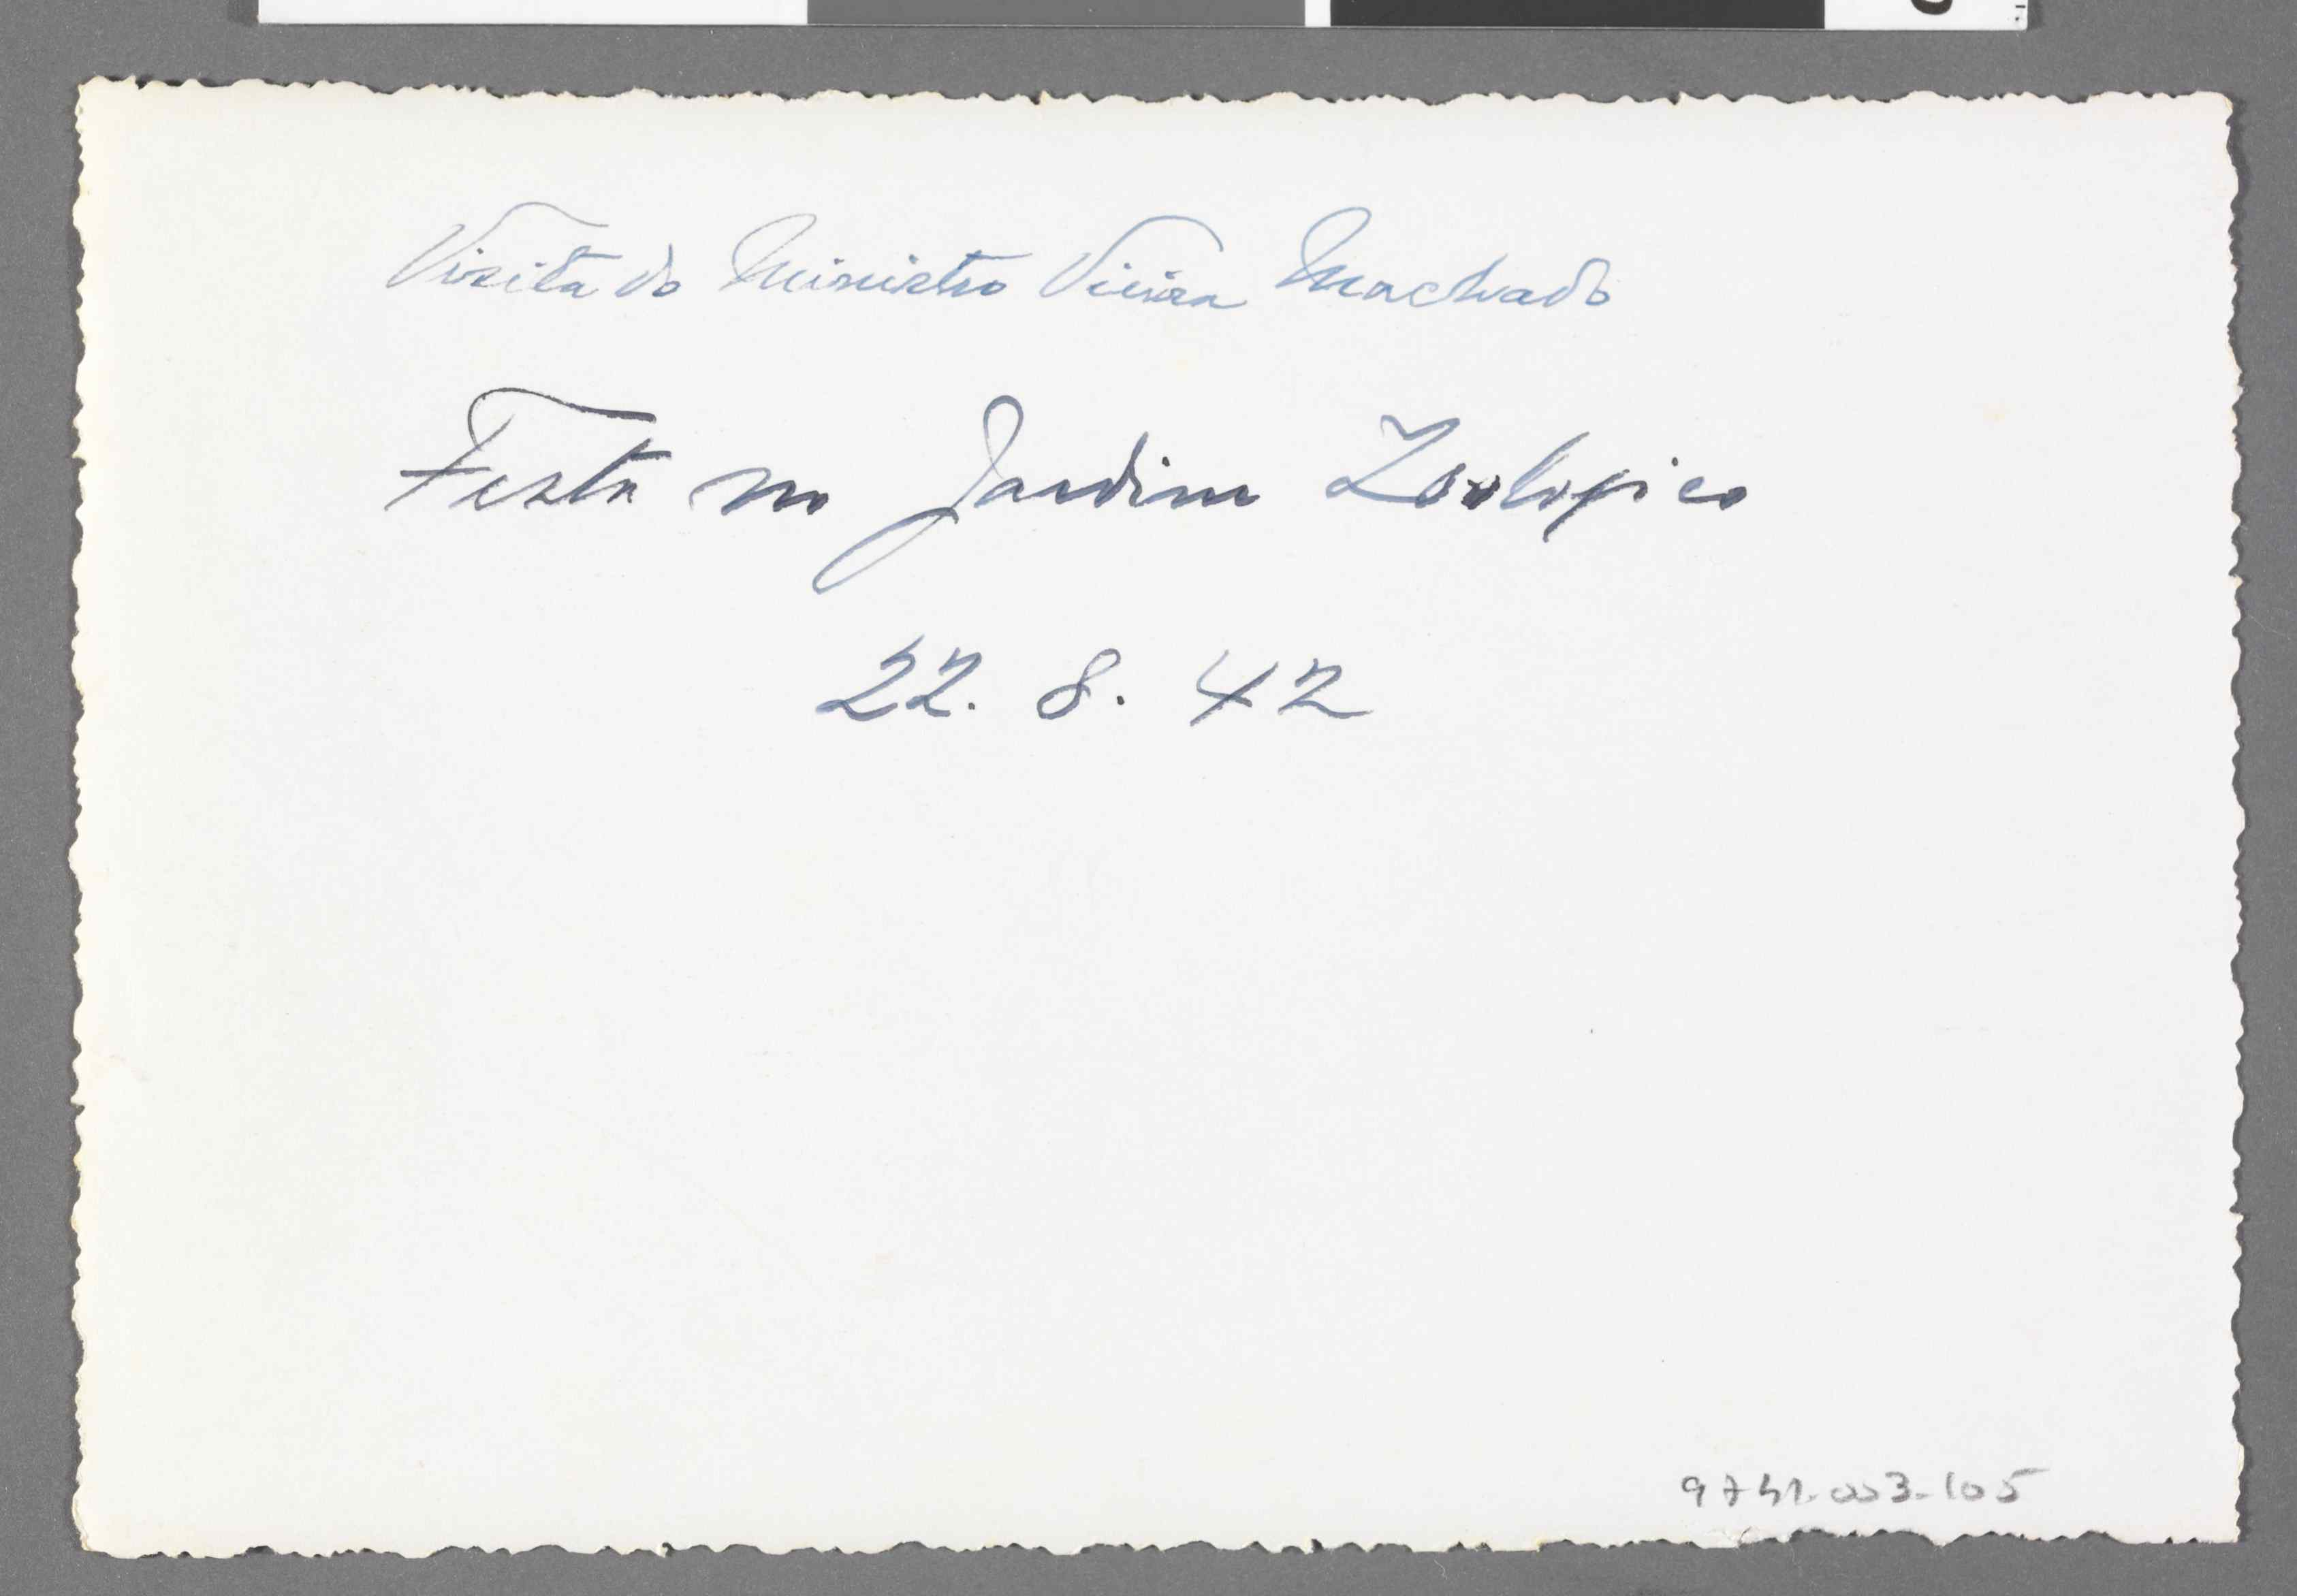 Visita do Ministro Vieira Machado
Festa no Jardim Zoologico
22. 8. 42
9741.003.105